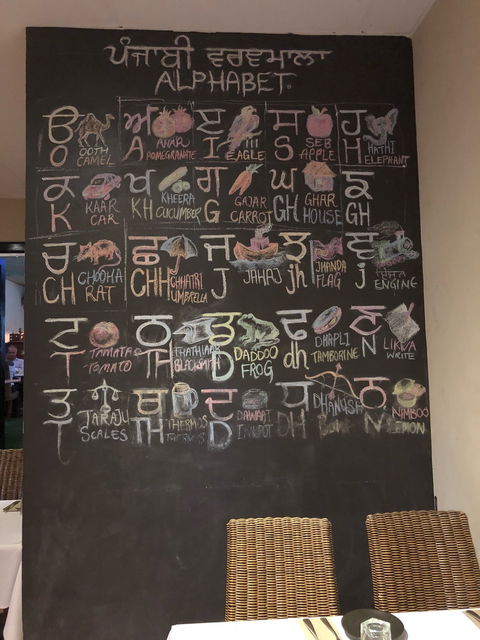 ਪੰਜਾਬੀ ਵਰਣਮਾਲਾ
ALPHABET.
ੳ O OOTH CAMEL
ਅ A ANAR POMEGRANATE
ੲ I ਇੱਲ EAGLE
ਸ S SEB APPLE
ਹ H HATHI ELEPHANT
ਕ K KAAR CAR
ਖ KH KHEERA CUCUMBER
ਗ G GAJAR CARROT
ਘ GH GHAR HOUSE
ਙ GH
ਚ CH CHOOHA RAT
ਛ CHH CHHATRI UMBRELLA
ਜ J JAHAJ
ਝ jh JHANDA FLAG
ਞ j ENGINE
ਟ T TAMATAR TOMATO
ਠ TH THATHIAAR BLACKSMITH
ਡ D DADDOO FROG
ਢ dh DHAPLI TAMBORINE
ਣ N LIKVA WRITE
ਤ T TARAJU SCALES
ਥ TH THERMOS THERMOS
ਦ D DAWAAT INKPOT
ਧ DH DHANUSH
ਨ N NIMBOO LEMON